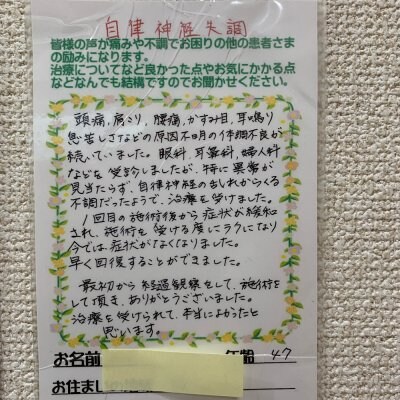 自律神経失調
皆様の声が痛みや不調でお困りの他の患者さま
の励みになります。
治療についてなど良かった点やお気にかかる点
などなんでも結構ですのでお聞かせください。
頭痛，肩こり，腰痛，かすみ目，耳鳴り
息苦しさなどの原因不明の体調不良が
続いていました。眼科，耳鼻科，婦人科
などを受診しましたが，特に異常が
見当たらず，自律神経の乱れからくる
不調だったようで，治療を受けました。
1回目の施術後から症状が緩和
され，施術を受ける度にラクになり
今では，症状がなくなりました。
早く回復することができました。
最初から経過観察をして，施術を
して頂き，ありがとうございました。
治療を受けられて，本当によかったと
思います。
お名前 年齢 47
お住まし